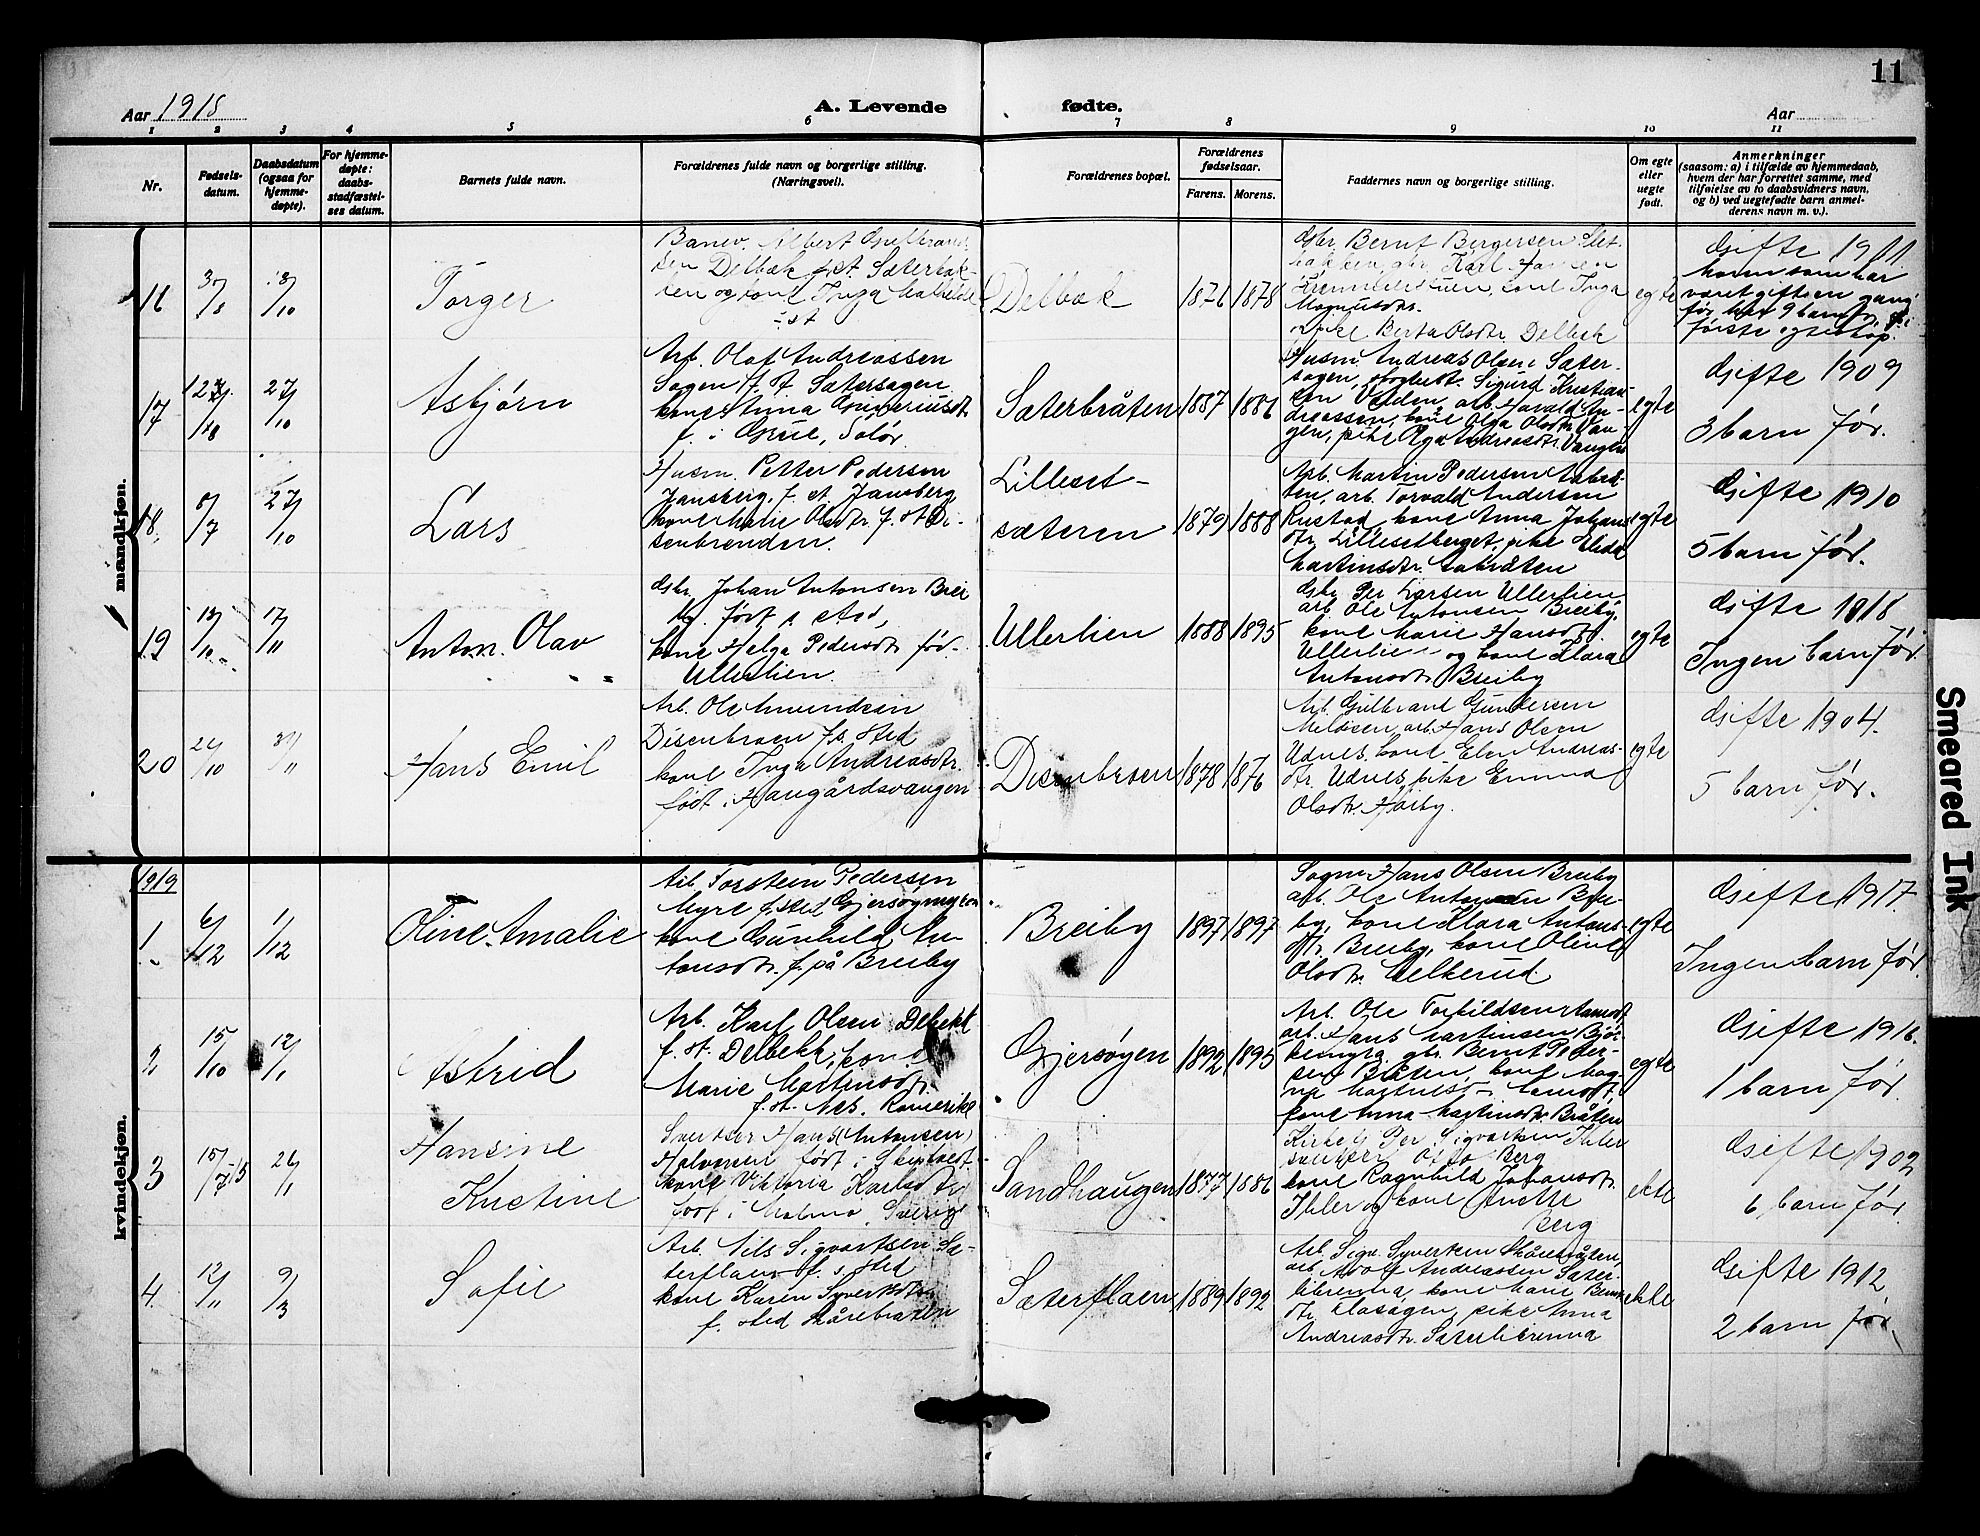 11
Aar 1918
A. Levende fødte.
Aar
1 2 3 4 5 6 7 8 9 10 11
Nr.
Fødsels-
datum.
Daabsdatum
(ogsaa for
hjemme-
døpte).
For hjemme-
døpte:
daabs-
stadfæstel-
ses datum.
Barnets fulde navn.
Forældrenes fulde navn og borgerlige stilling.
(Næringsvei).
Forældrenes bopæl.
Forældrenes
fødselsaar.
Farens. Morens.
Faddernes navn og borgerlige stilling.
Om egte
eller
uegte
født.
Anmerkninger
(saasom: a) i tilfælde av hjemmedaab,
hvem der har forrettet samme, med
tilføielse av to daabsvidners navn,
og b) ved uegtefødte barn anmel-
derens navn m. v.).
mandkjøn.
16
3/8
13/10
Torger
Banev. Albert Gulbrand-
sen Delbæk
sen og kone Inga Mathilde
Delbæk
1876 1878
Gbr. Bernt Bergersen Slet-
bakken, gbr. Karl Hansen
kone Inga
Magnusdtr.
pike Berta Olsdtr. Delbæk
egte
Gifte 1911
været gift en gang
før, har 9 barn
første egteskap.
17
27/10
Asbjørn
Arb. Olaf Andreassen
Sagen f. st. Sætersagen
kone Anna
f. i Grue, Solør.
Sæterbråten
1887 1886
Husm. Andreas Olsen Sæter-
sagen, Sigurd Kristian-
sen arb. Harald An-
dreassen, kone Olga Olsdtr. Van-
gen, pike Olga Andreasdtr. Vangen
egte
Gifte 1909
3 barn før.
18.
8/7
27/10
Lars
Husm. Petter Pedersen
Jansberg, f. st. Jansberg
kone Marie Olsdtr. f. st. Di-
senbrenden.
Lilleset-
sæteren
1879 1888
Arb. Martin Pedersen
arb. Torvald Andersen
Rustad, kone Anna Johans
dtr. Lillesetberget, pike
Martinsdtr.
egte
Gifte 1910
5 barn før.
19
13/10
17/11
Anton Olav
Gbr. Johan Antonsen Brei
by. født s. sted,
kone Helga Pedersdtr. fød.
Ullerlien.
Ullerlien
1888 1895
Gbr. Per Larsen Ullerlien
arb. Ole Antonsen Breiby,
kone Marie Hansdtr.
Ullerlien og kone Klara
Antonsdtr. Breiby
egte
Gifte 1918
Ingen barn før.
20
Hans Emil
Arb. Ole Amundsen
Disenbroen f. s. sted
kone Inga Andreasdtr.
født i Haugårdsvangen
Disenbroen
1878 1876
Arb. Gulbrand Gundersen
arb. Hans Olsen
Udnes, kone Elen Andreas-
dtr. Udnes, pike Emma
Olsdtr. Hårby.
egte
Gifte 1904.
5 barn før.
kvindekjøn.
1919
1
6/12
1/12
Oline Amalie
Arb. Torstein Pedersen
Myre f. sted Gjersøymyren
kone Gunhild An-
tonsdtr. f. på Breiby
Breiby
1897 1897
Sagm. Hans Olsen Breiby
arb. Ole Antonsen Brei-
by, kone Klara Antons-
dtr. Breiby, kone Oline
Olsdtr. Melkerud
egte
Gifte 1917.
Ingen barn før.
2
15/10
12/1
Astrid
Arb. Karl Olsen Delbekk
f. st. Delbekk, kone
Marie Martinsdtr.
f. st. Nes, Romerike
Gjersøyen
1892 1895
Arb. Ole Torkildsen
arb. Hans Martinsen Bjør-
kemyra, gbr. Bernt Peder-
sen Bråten, kone Mag-
na Magnusdtr.
kone Anna Martinsdtr. Bråten
egte
Gifte 1916.
1 barn før.
3
26/1
Hansine
Kristine
Hans (Antonsen)
Halvorsen født i
kone Viktoria
født i Malmø, Sverige
Sandhaugen
1877 1886
Kirket. Per Sigvartsen Ihler
Otto Berg
kone Ragnhild Johansdtr.
Ihler og kone Anette
Berg
ekte
Gifte 1902
6 barn før.
4.
12/11
9/3
Sofie
Arb. Nils Sigvartsen Sæ-
terflaen f. s. sted
kone Karen Syversdtr.
f. sted Skårebråten
Sæterflaen
1889 1892
Arb. Sigv. Syversen Skårebråten,
arb. Adolf Andreassen Sæter-
librenna, kone Marie Bernts
dtr. pike Anna
Andreasdtr. Sæterlibrenna
ekte
Gifte 1912
2 barn før.
Smeared Ink